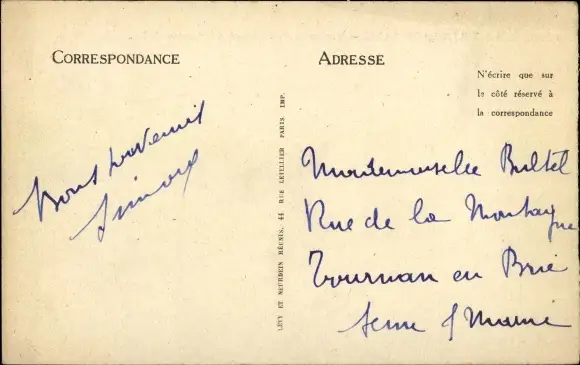 CORRESPONDANCE
ADRESSE
N'écrire que sur
le côté réservé à
la correspondance
Bons souvenirs
LÉVY ET NEURDEIN RÉUNIS, 44, RUE LETELLIER PARIS IMP.
Mademoiselle Bultel
Rue de la Montagne
Tournan en Brie
Seine &